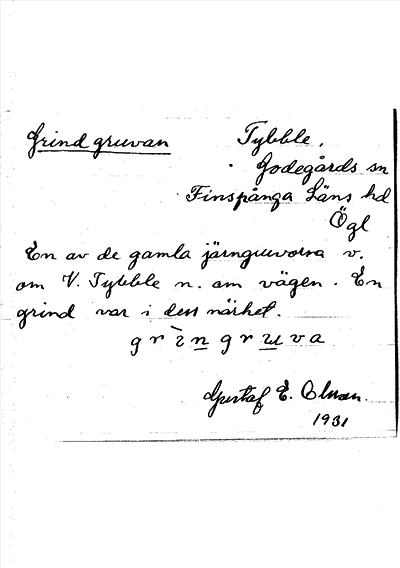 Grindgruvan
Tybble,
Godegårds sn
Finspånga Läns hd
Ögl
En av de gamla järngruvorna v.
om V. Tybble n. om vägen. En
grind var i dess närhet.
grìngruva
Gustaf E. Olman.
1931